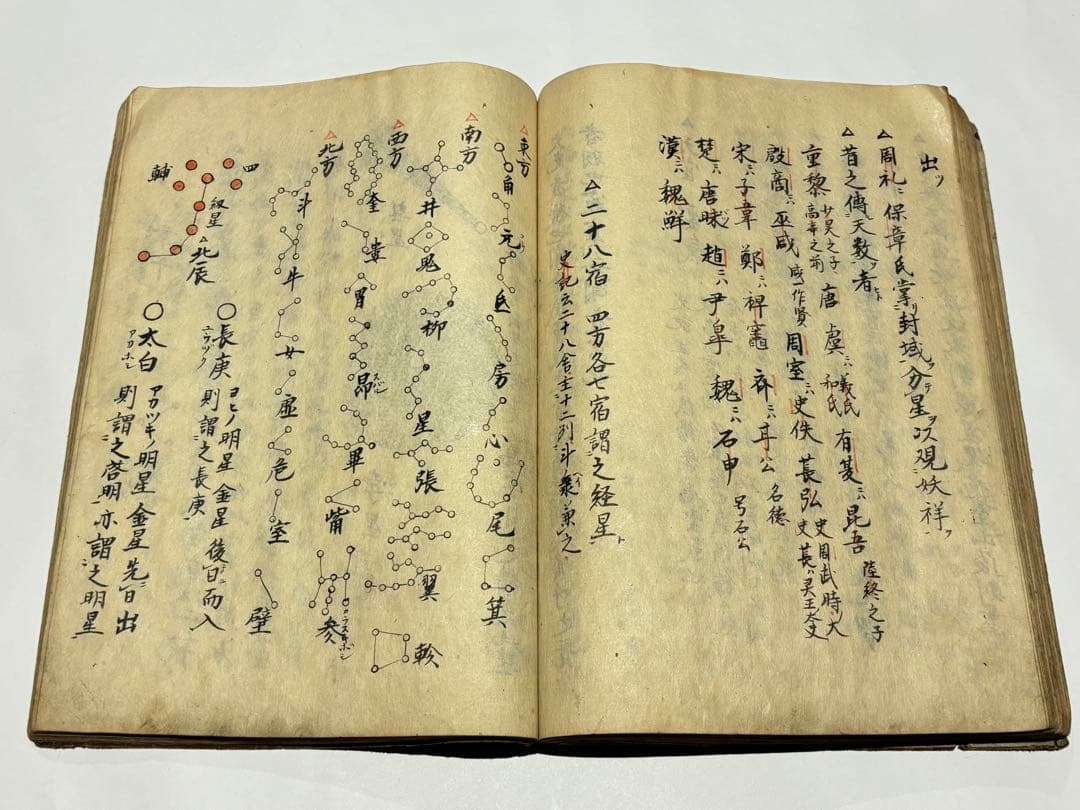 出ッ
△周礼ニ保章氏掌リ封域ヲ分テ星ヲ以観妖祥ヲ
△昔之傳天数ヲ者
重黎 少昊之子 高辛之前 唐虞ニハ 羲氏 和氏 有夏ニハ昆吾 陸終之子
殷商ニハ巫咸 咸作賢 周室ニハ史佚 萇弘 史周武時大 史萇ハ灵王大丈
宋ニハ子韋 鄭ニハ裨竈 齊ニハ耳公 名徳
楚ニハ唐昧 趙ニハ尹皐 魏ニハ石申 号石公
漢ニハ魏鮮
△二十八宿 四方各七宿謂之経星ト
史記云二十八舎主十二列斗兼之
△東方 角 亢 氐 房 心 尾 箕
△南方 井 鬼 柳 星 張 翼 軫
△西方 奎 婁 胃 昴 スバル 畢 觜 参 カラスキボシ
△北方 斗 牛 女 虚 危 室 壁
四 輔 級星
△北辰
○長庚 ユウツヽ ヨヒノ明星 金星 後日而入
則謂之長庚
○太白 アカボシ アカツキノ明星 金星先日出
則謂之啓明亦謂之明星